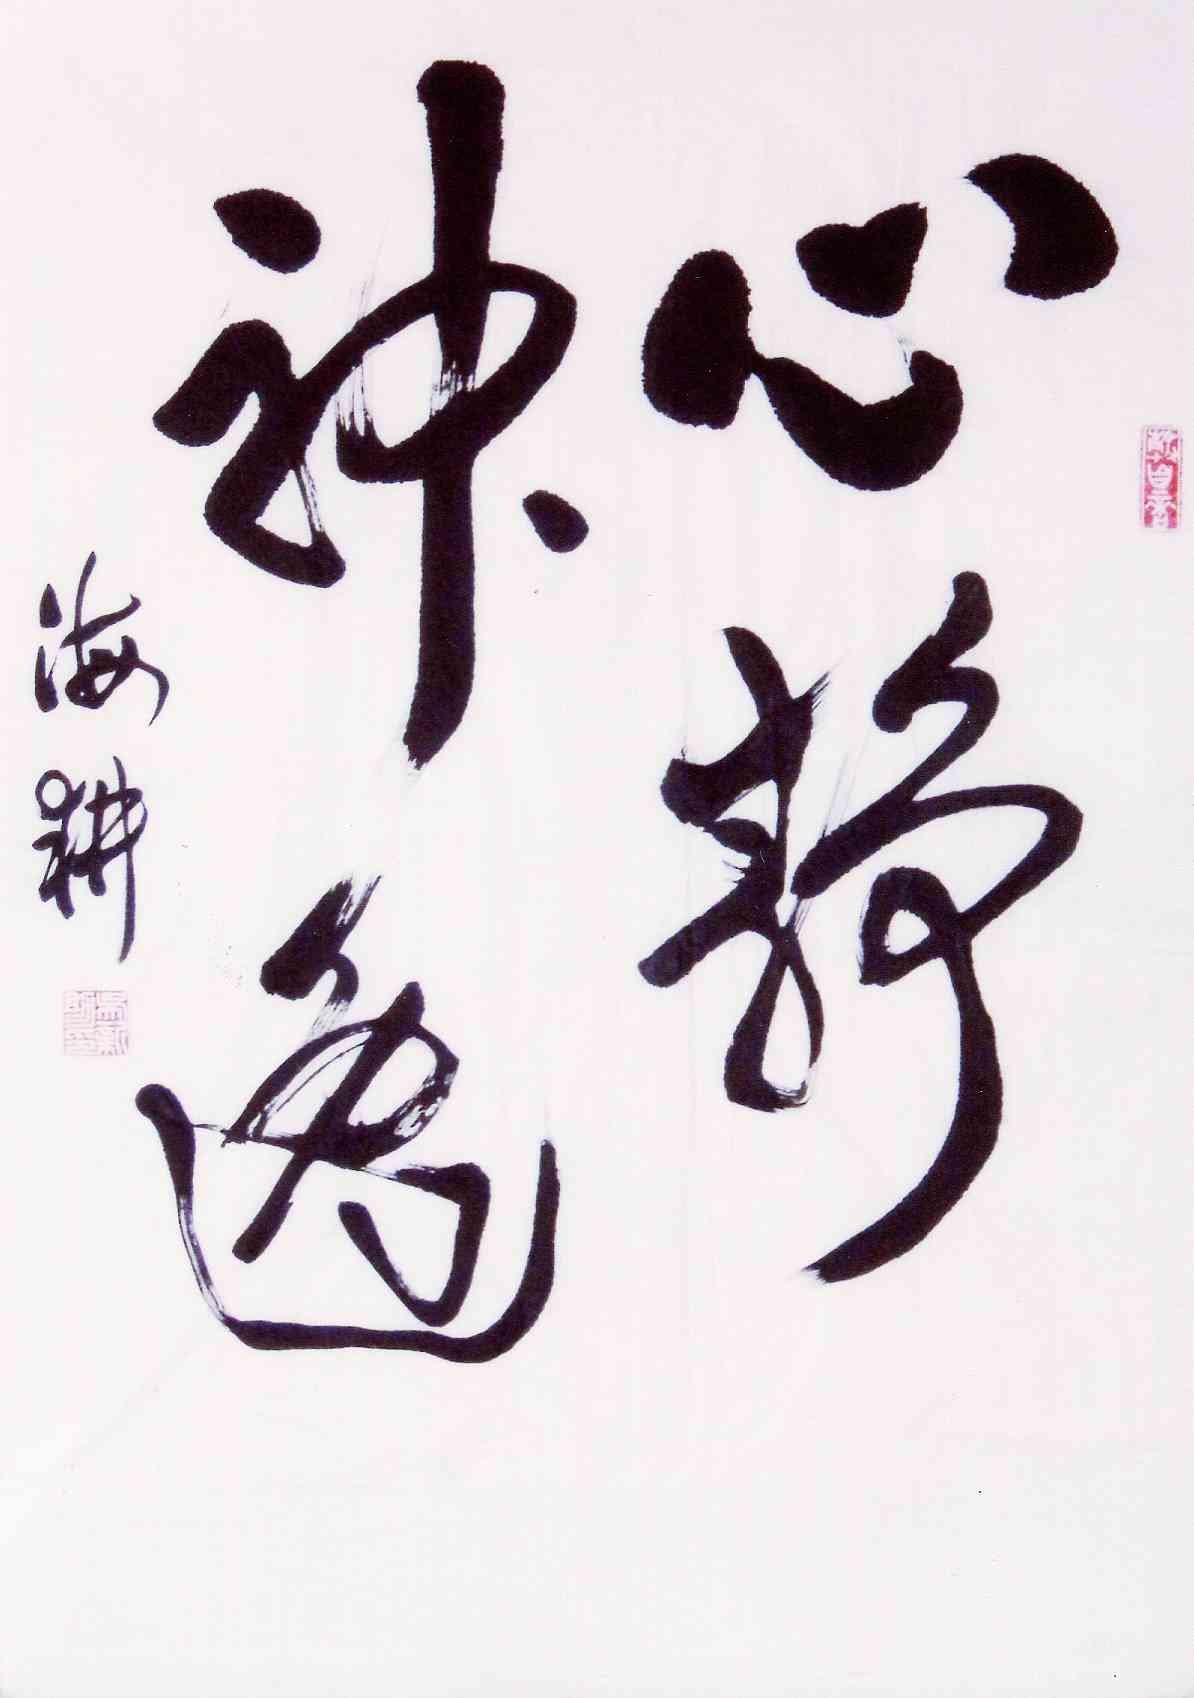 心静
神逸
海耕